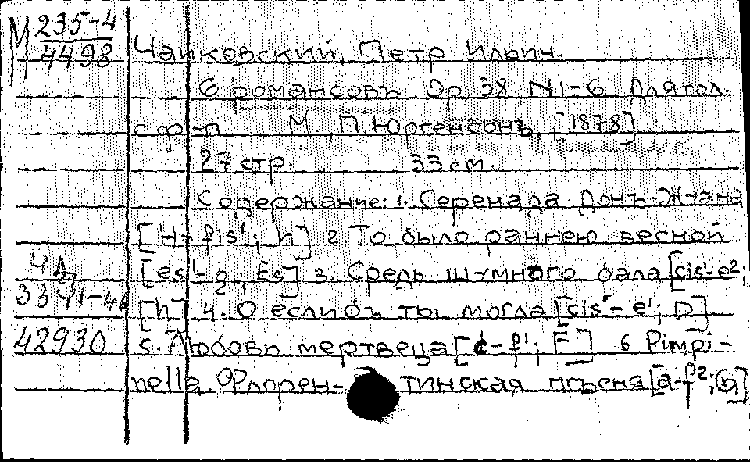 М 235-4
4498
Чайковский, Петр Ильич.
6 романсовъ Op 38 N1-6 Для гол
с ф-п. М П. Юргенсонъ, [1878]
27 стр. 33 см.
Содержание: 1. Серенада Донъ-Жуана
[H-fis'; h] 2 То было раннею весной
[es'-g, Es] 3. Средь шумного бала [cis'-e²;
[h] 4. О если бъ ты могла [cis'-e'; D]
5. Любовь мертвеца [-f'; F] 6 Pimpi-
nella Флорен-тинская пѣсня [a-f²; G]
3341-4
42930